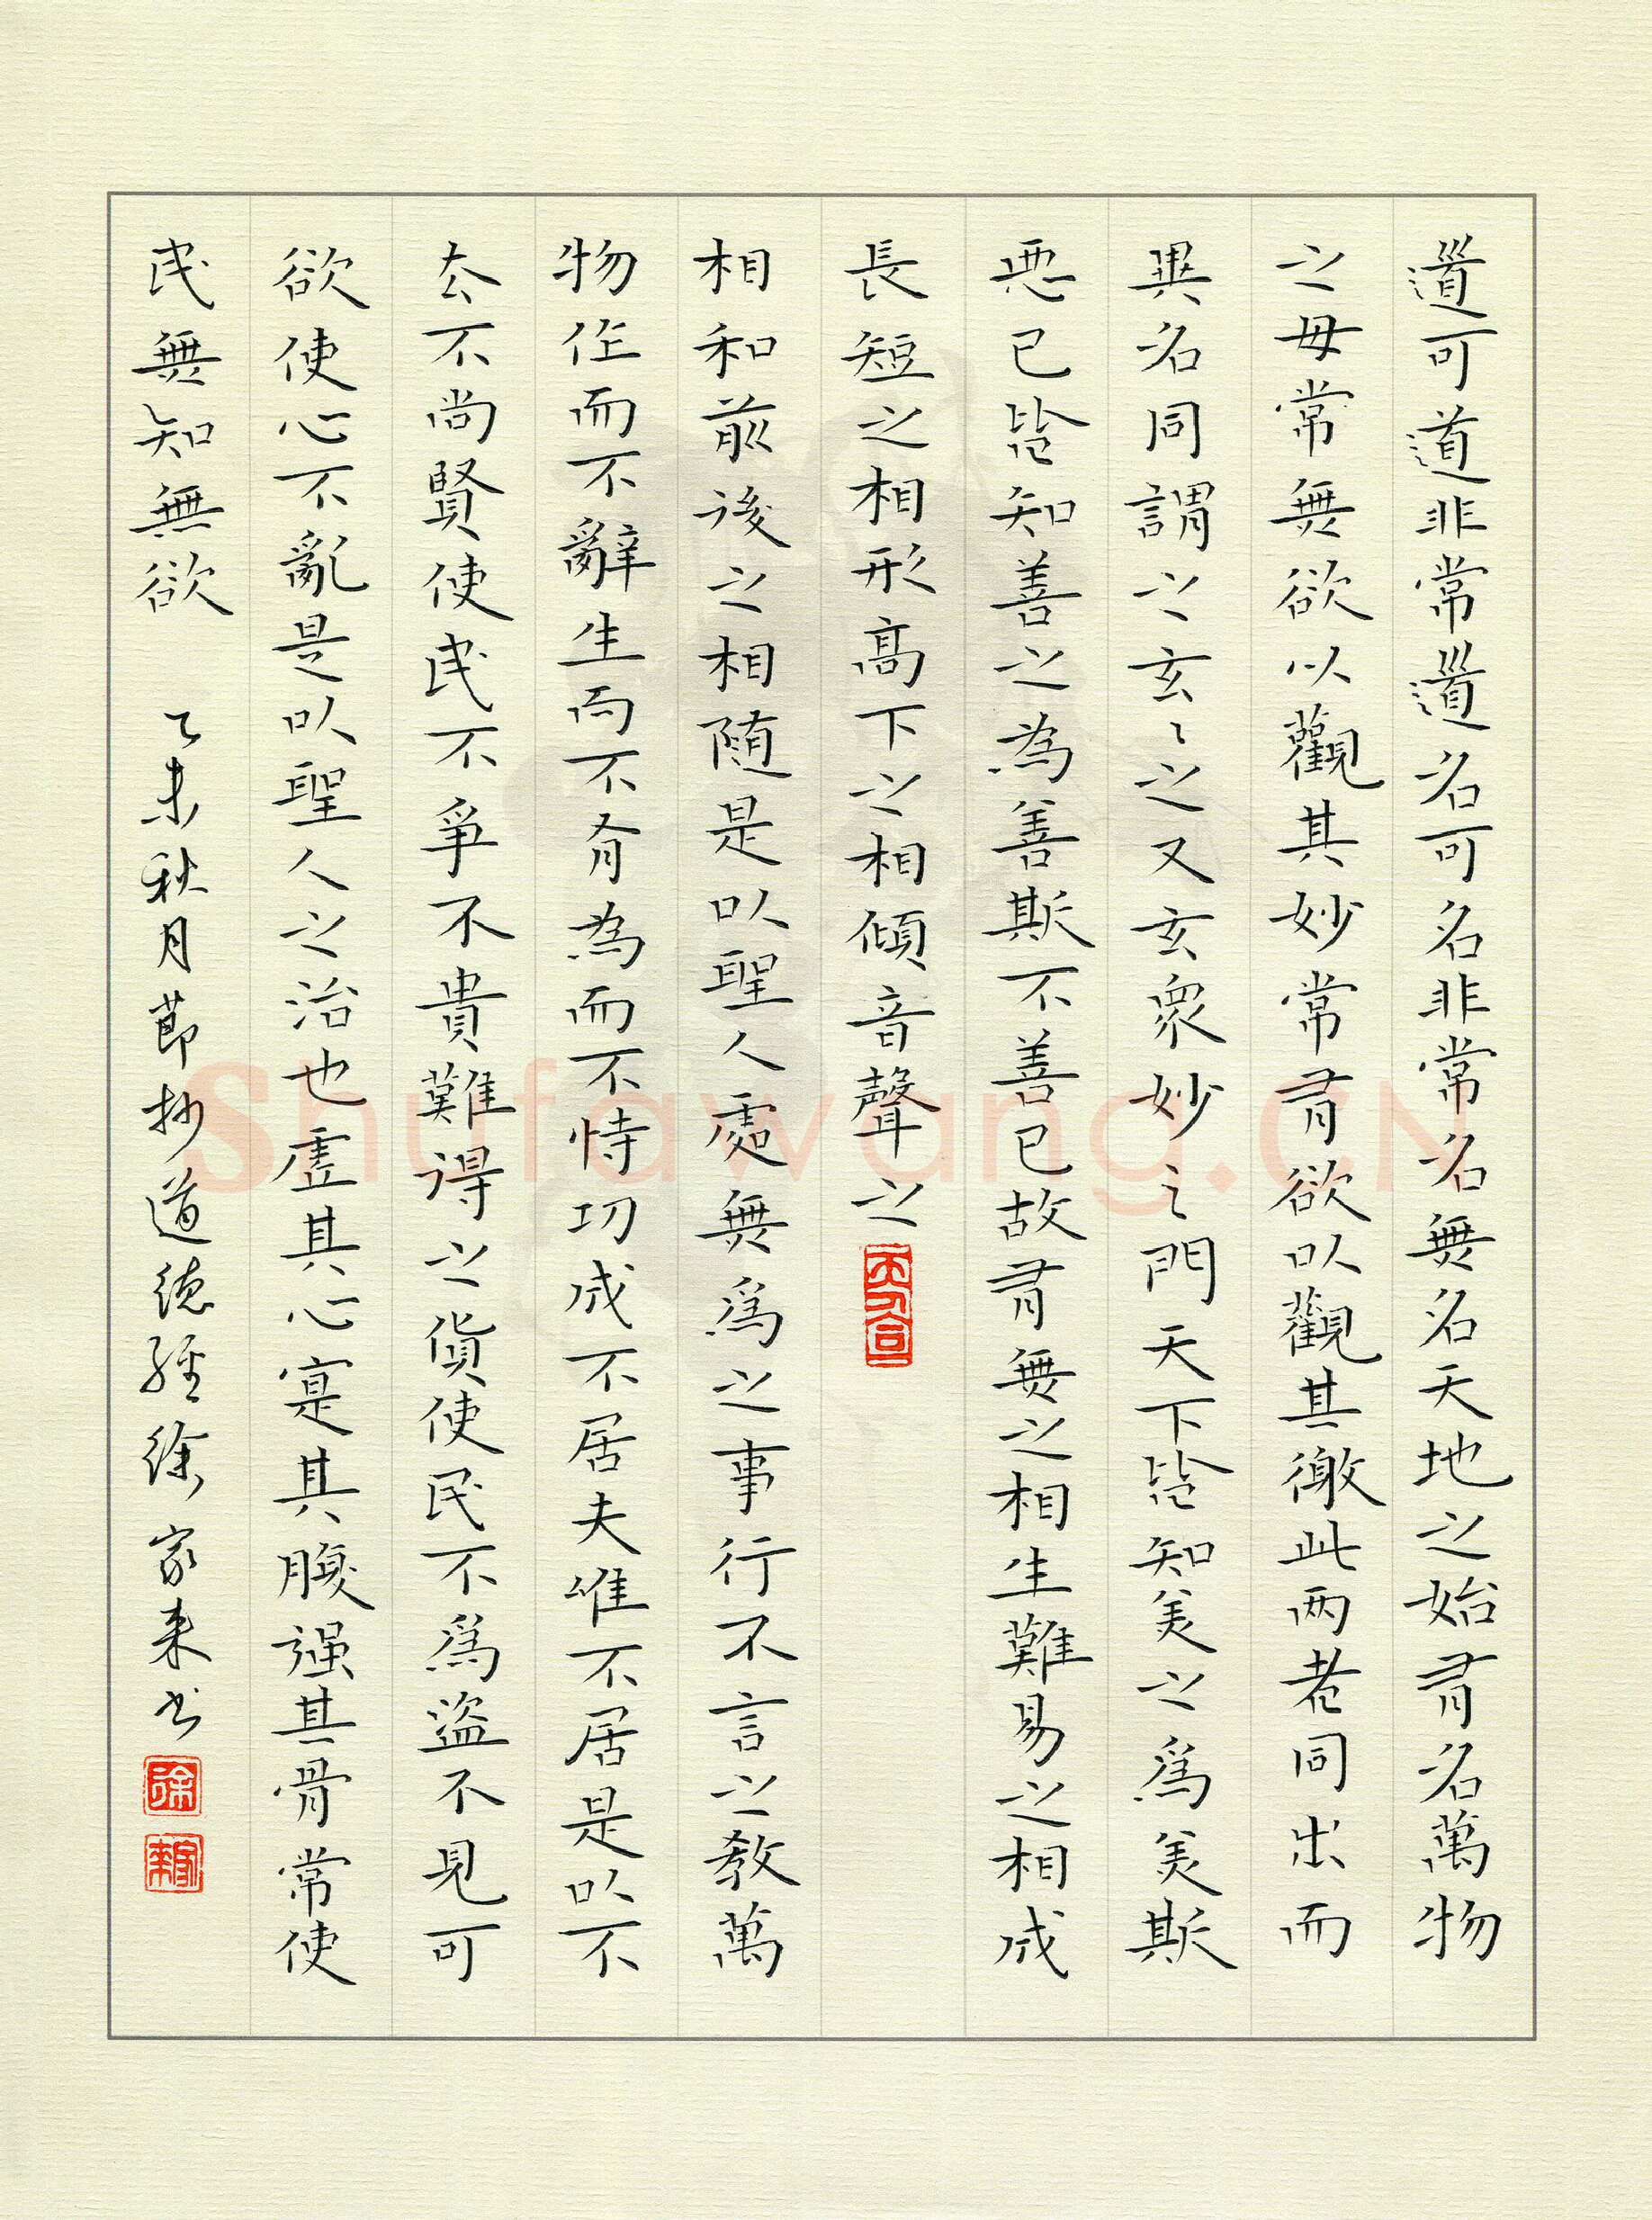 道可道非常道名可名非常名無名天地之始有名萬物
之母常無欲以觀其妙常有欲以觀其徼此两者同出而
異名同謂之玄々之又玄衆妙之門天下皆知美之爲美斯
惡已皆知善之為善斯不善已故有無之相生難易之相成
長短之相形高下之相傾音聲之
相和前後之相随是以聖人處無爲之事行不言之教萬
物作而不辭生而不有為而不恃功成不居夫唯不居是以不
去不尚賢使民不爭不貴難得之貨使民不爲盗不見可
欲使心不亂是以聖人之治也虚其心寔其腹强其骨常使
民無知無欲 乙未秋月節抄道德經徐家来书
徐
家来
Shufawang.CN